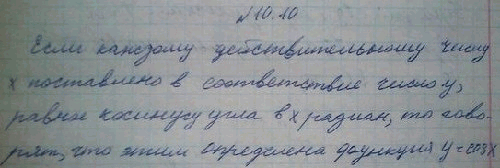 №10.10
Если каждому действительному числу
x поставлено в соответствие число y,
равное косинусу угла в x радиан, то гово-
рят, что этим определена функция y = cos x